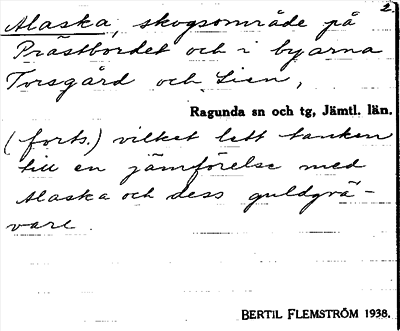 2.
Alaska, skogsområde på
Prästbordet och i byarna
Torsgård och Lien,
Ragunda sn och tg, Jämtl. län.
(forts.) vilket lett tanken
till en jämförelse med
Alaska och dess guldgrä-
vare.
BERTIL FLEMSTRÖM 1938.